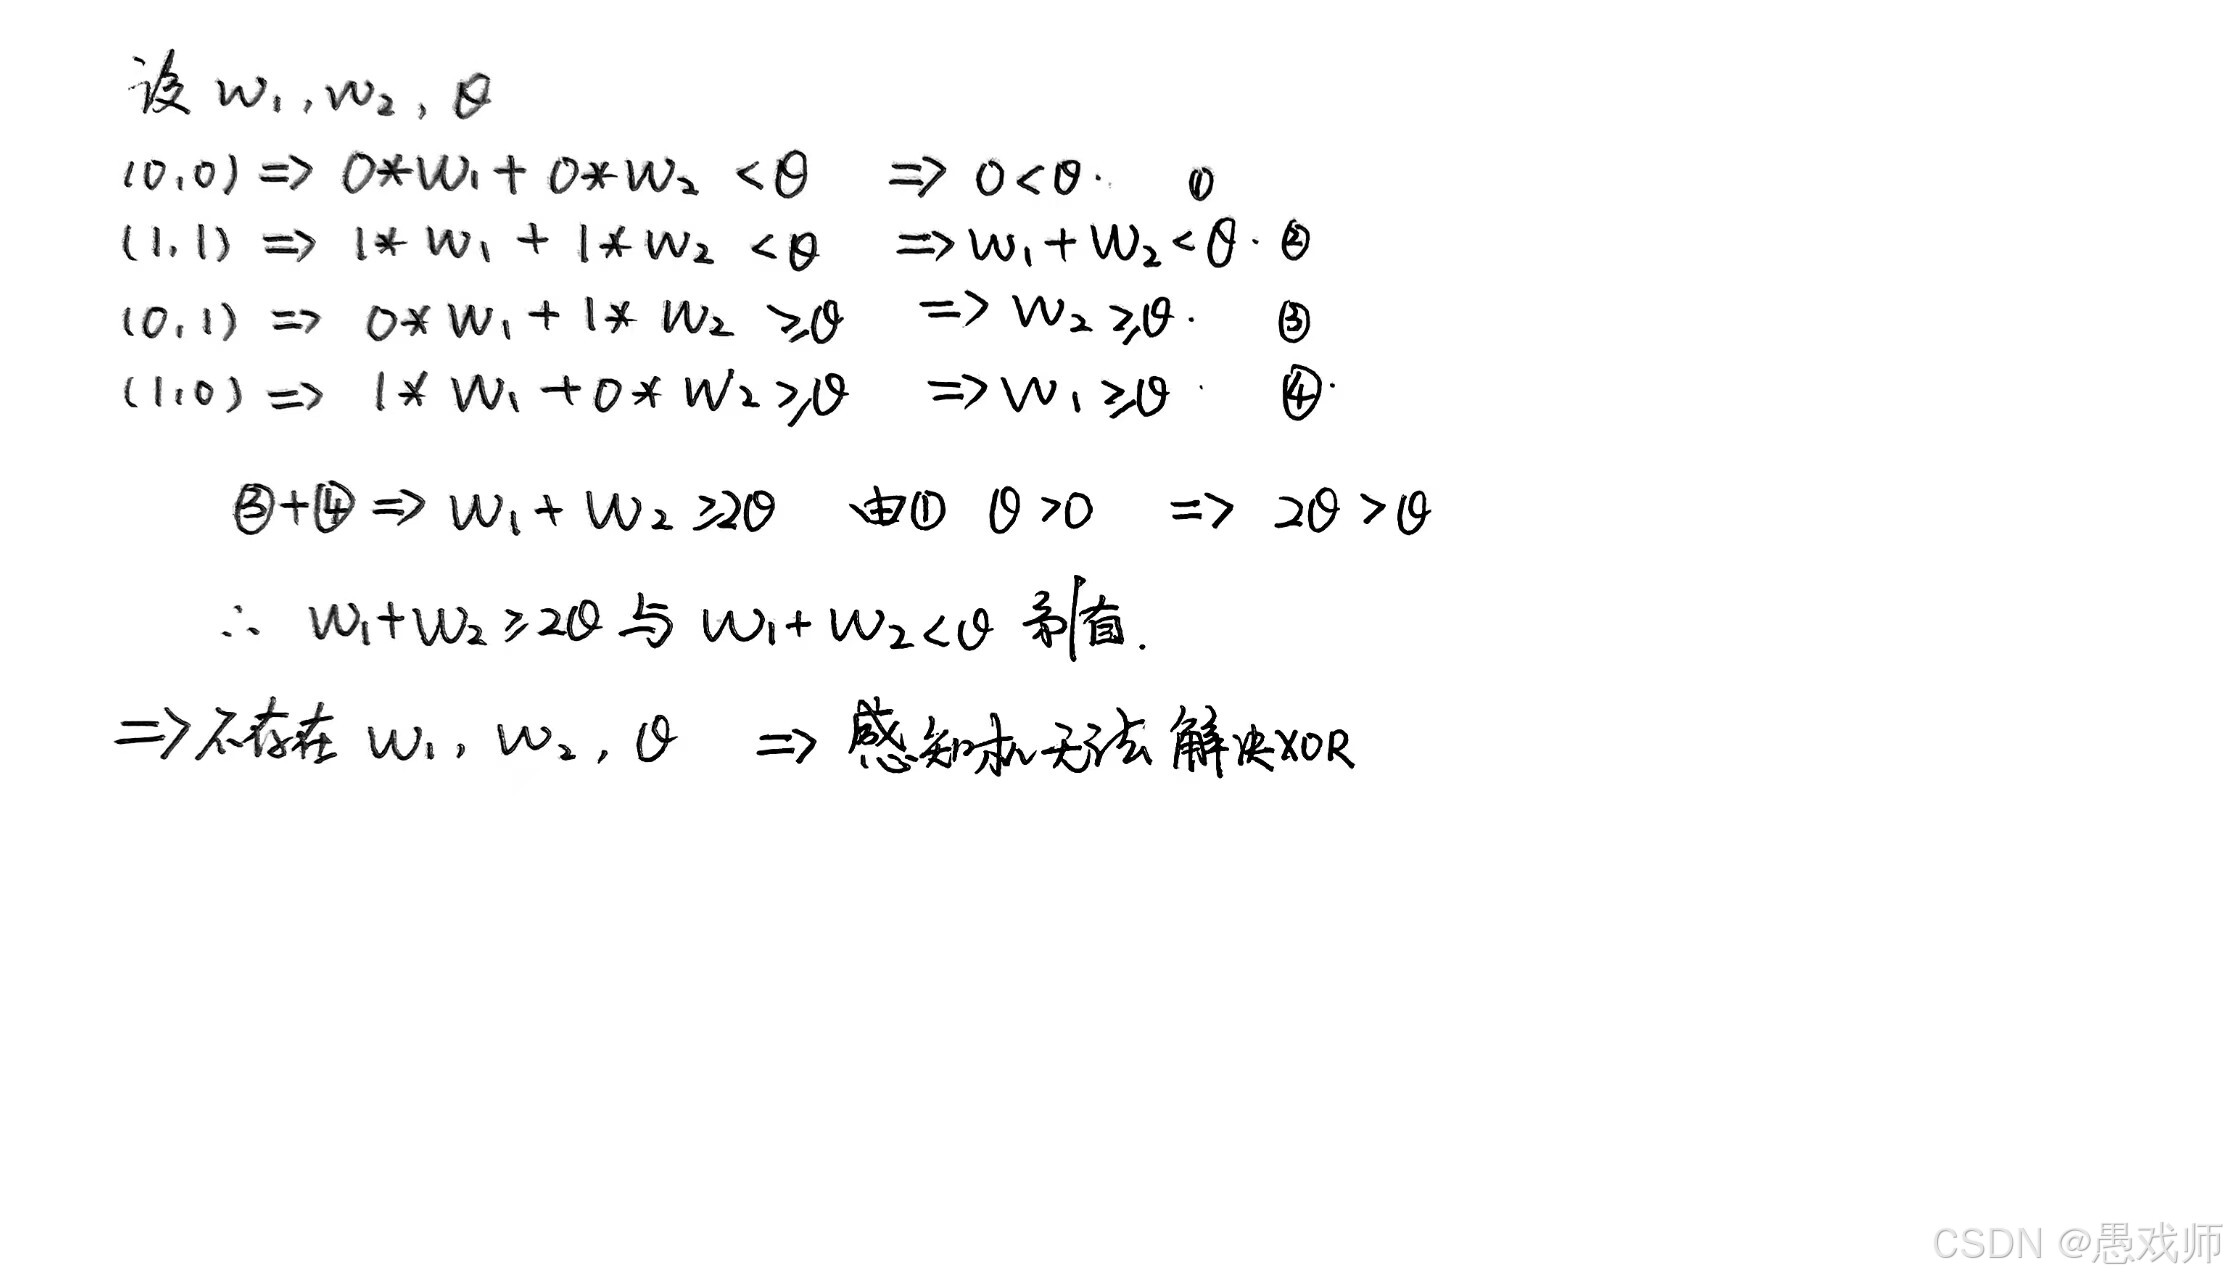 设 w₁, w₂, θ
(0,0) => 0*w₁ + 0*w₂ < θ => 0 < θ. ①
(1,1) => 1*w₁ + 1*w₂ < θ => w₁ + w₂ < θ. ②
(0,1) => 0*w₁ + 1*w₂ ≥ θ => w₂ ≥ θ. ③
(1,0) => 1*w₁ + 0*w₂ ≥ θ => w₁ ≥ θ. ④.
③+④ => w₁ + w₂ ≥ 2θ 由① θ > 0 => 2θ > θ
∴ w₁+w₂ ≥ 2θ 与 w₁+w₂ < θ 矛盾.
=> 不存在 w₁, w₂, θ => 感知机无法解决XOR
CSDN @愚戏师